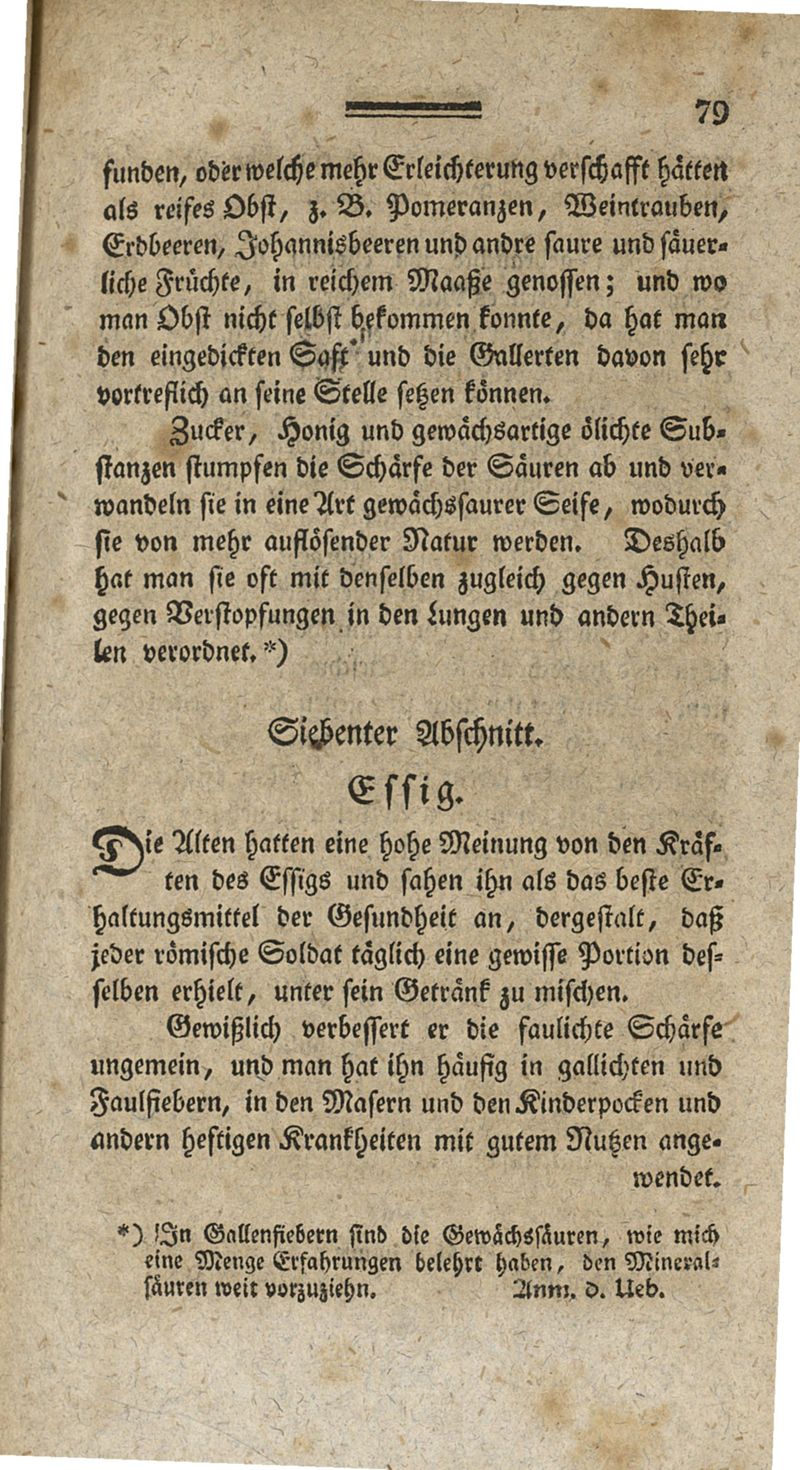 79
funden, oder welche mehr Erleichterung verschafft hätten
als reifes Obst, z. B. Pomeranzen, Weintrauben,
Erdbeeren, Johannisbeeren und andre saure und säuer-
liche Früchte, in reichem Maaße genossen; und wo
man Obst nicht selbst bekommen konnte, da hat man
den eingedickten Saft und die Gallerten davon sehr
vortreflich an seine Stelle setzen können.
Zucker, Honig und gewächsartige ölichte Sub-
stanzen stumpfen die Schärfe der Säuren ab und ver-
wandeln sie in eine Art gewächssaurer Seife, wodurch
sie von mehr auflösender Natur werden. Deshalb
hat man sie oft mit denselben zugleich gegen Husten,
gegen Verstopfungen in den Lungen und andern Thei-
len verordnet. *)
Siebenter Abschnitt.
Essig.
Die Alten hatten eine hohe Meinung von den Kräf-
ten des Essigs und sahen ihn als das beste Er-
haltungsmittel der Gesundheit an, dergestalt, daß
jeder römische Soldat täglich eine gewisse Portion des-
selben erhielt, unter sein Getränk zu mischen.
Gewißlich verbessert er die faulichte Schärfe
ungemein, und man hat ihn häufig in gallichten und
Faulfiebern, in den Masern und den Kinderpocken und
andern heftigen Krankheiten mit gutem Nutzen ange-
wendet.
*) In Gallenfiebern sind die Gewächssäuren, wie mich
eine Menge Erfahrungen belehrt haben, den Mineral-
säuren weit vorzuziehn. Anm. d. Ueb.